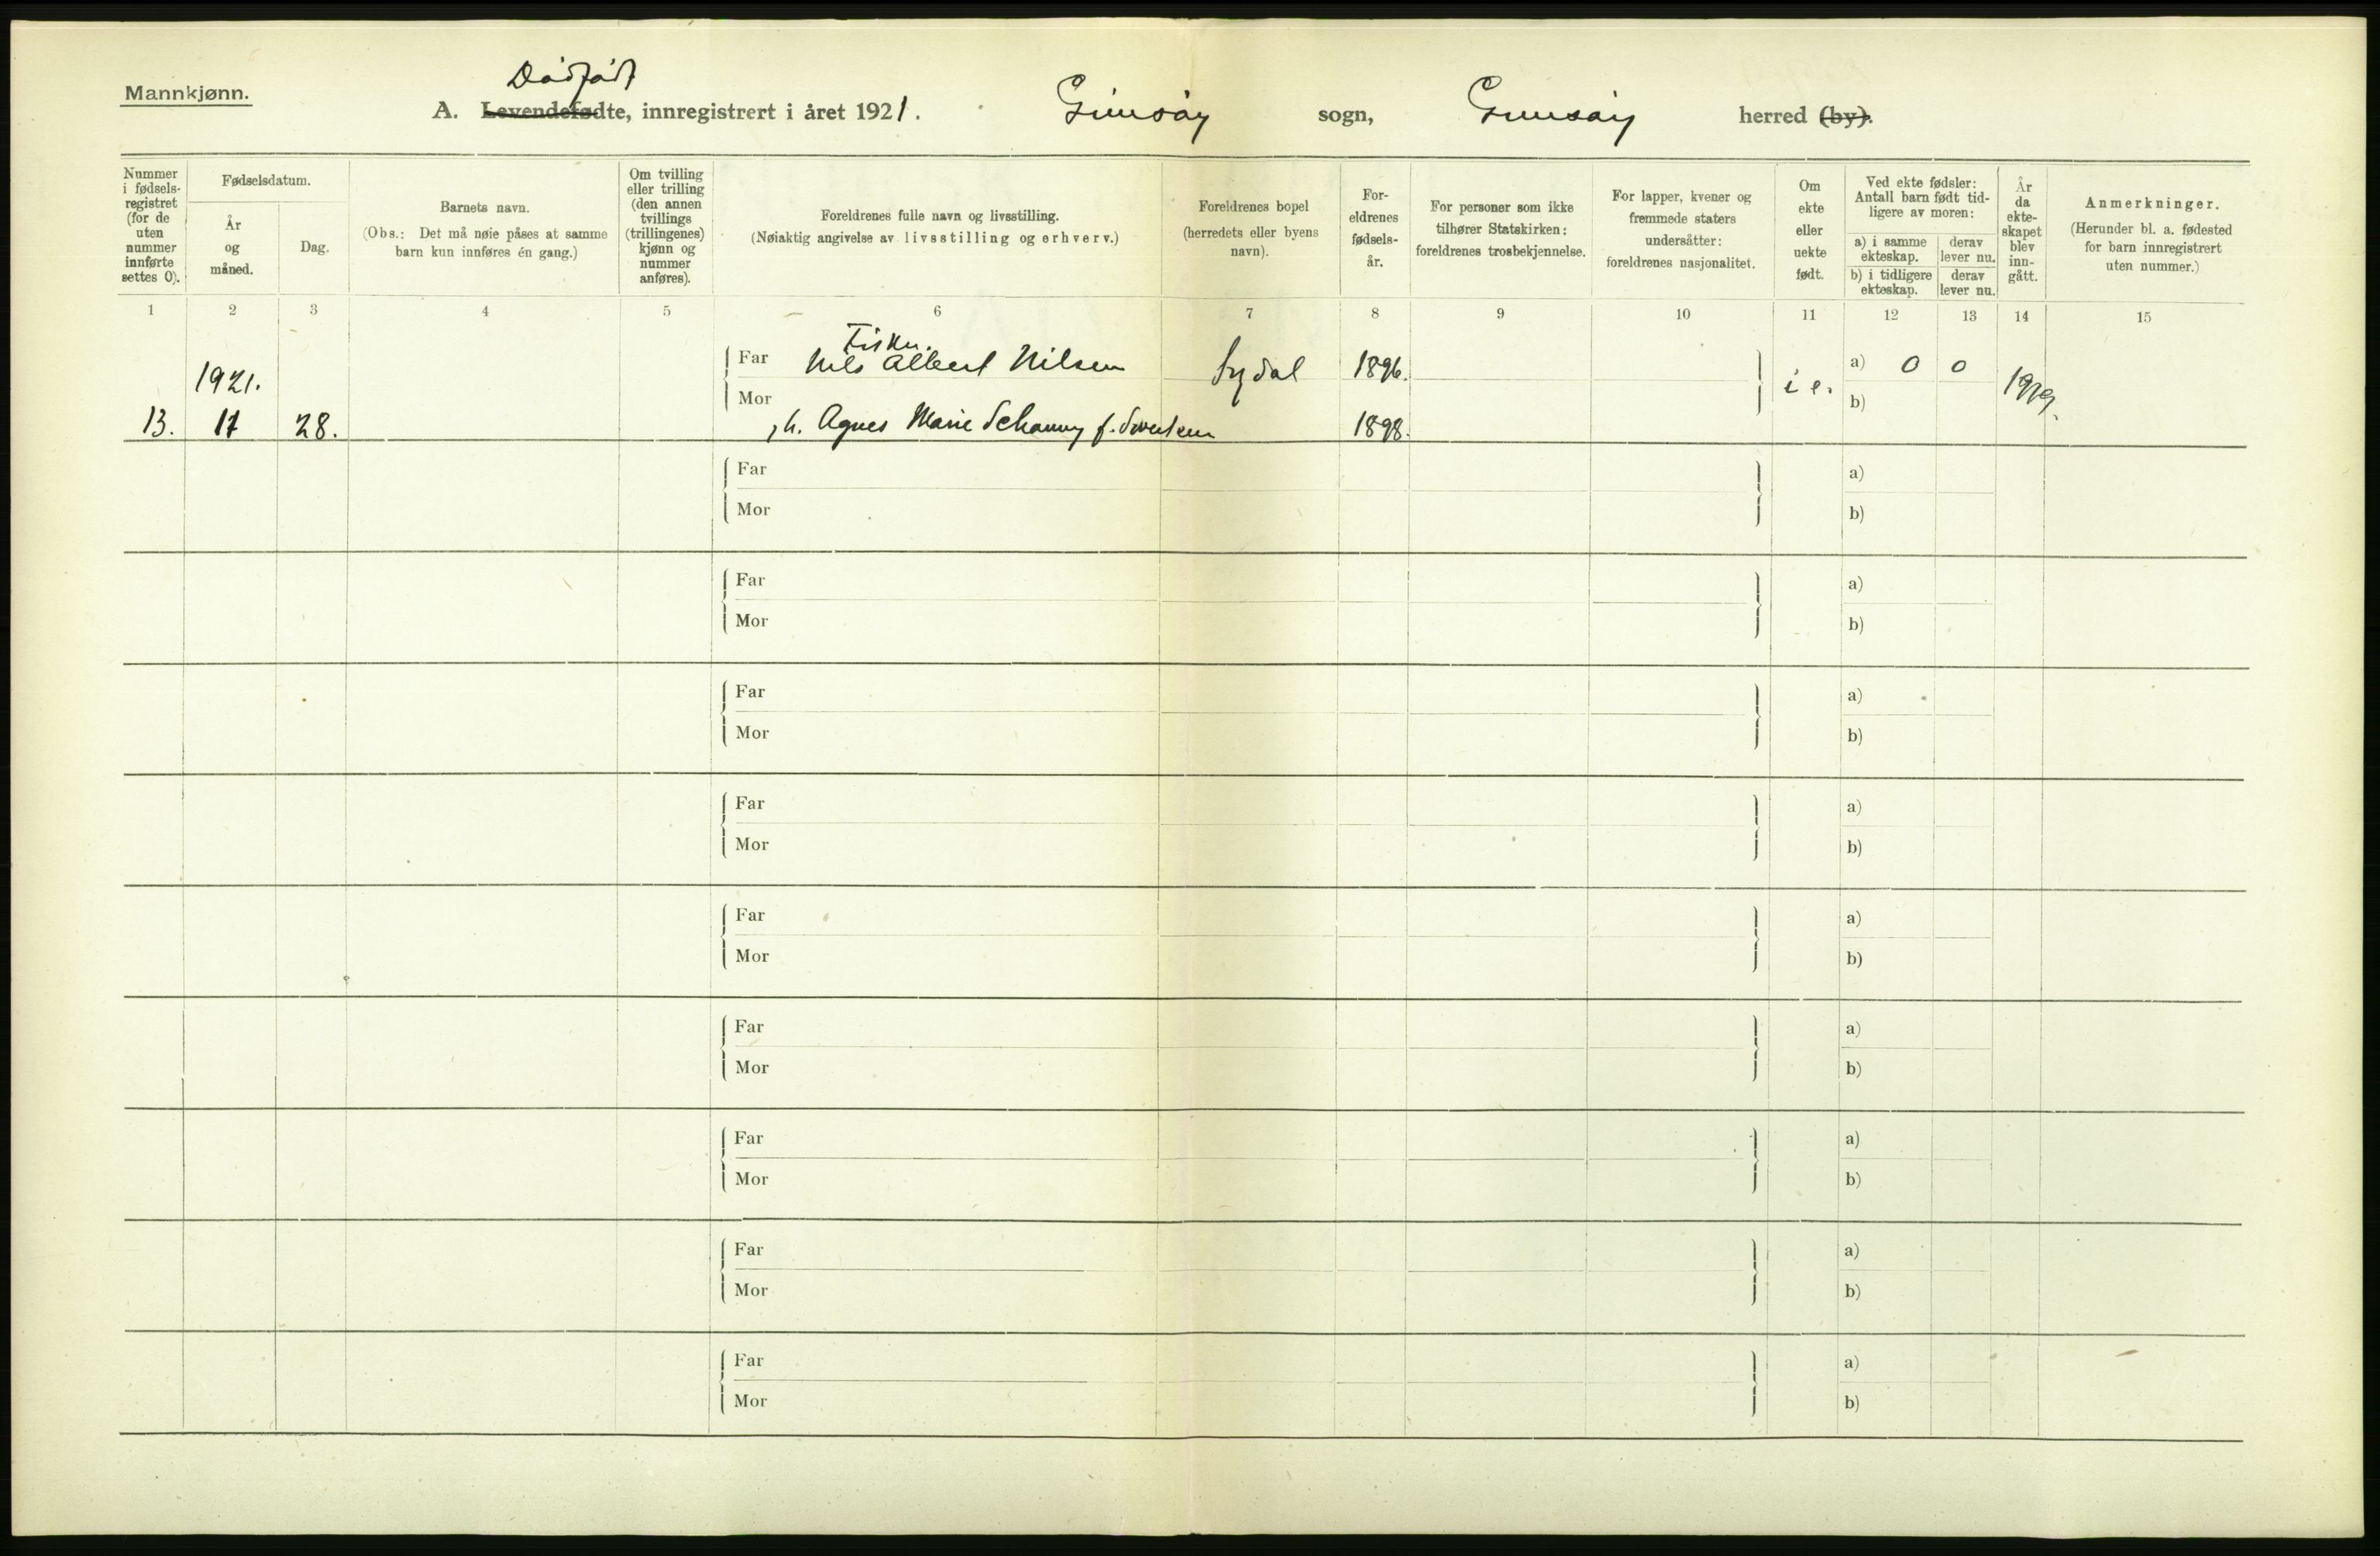 Mannkjønn.
Dødfødt
A. Levendefødte, innregistrert i året 1921. Gimsøy sogn, Gimsøy herred (by).
Nummer i fødselsregistret (for de uten nummer innførte settes 0).
Fødselsdatum.
År og måned.
Dag.
Barnets navn.
(Obs.: Det må nøie påses at samme barn kun innføres én gang.)
Om tvilling eller trilling (den annen tvillings (trillingenes) kjønn og nummer anføres).
Foreldrenes fulle navn og livsstilling.
(Nøiaktig angivelse av livsstilling og erhverv.)
Foreldrenes bopel (herredets eller byens navn).
Foreldrenes fødselsår.
For personer som ikke tilhører Statskirken: foreldrenes trosbekjennelse.
For lapper, kvener og fremmede staters undersåtter: foreldrenes nasjonalitet.
Om ekte eller uekte født.
Ved ekte fødsler: Antall barn født tidligere av moren:
a) i samme ekteskap. derav lever nu.
b) i tidligere ekteskap. derav lever nu.
År da ekteskapet blev inngått.
Anmerkninger.
(Herunder bl. a. fødested for barn innregistrert uten nummer.)
1 2 3 4 5 6 7 8 9 10 11 12 13 14 15
Fisker.
Far Nils Albert Nilsen Sydal 1896. a) 0 0
1921. i e. 1919.
Mor b)
13. 11 28. h. Agnes Marie f. 1898.
Far a)
Mor b)
Far a)
Mor b)
Far a)
Mor b)
Far a)
Mor b)
Far a)
Mor b)
Far a)
Mor b)
Far a)
Mor b)
Far a)
Mor b)
Far a)
Mor b)